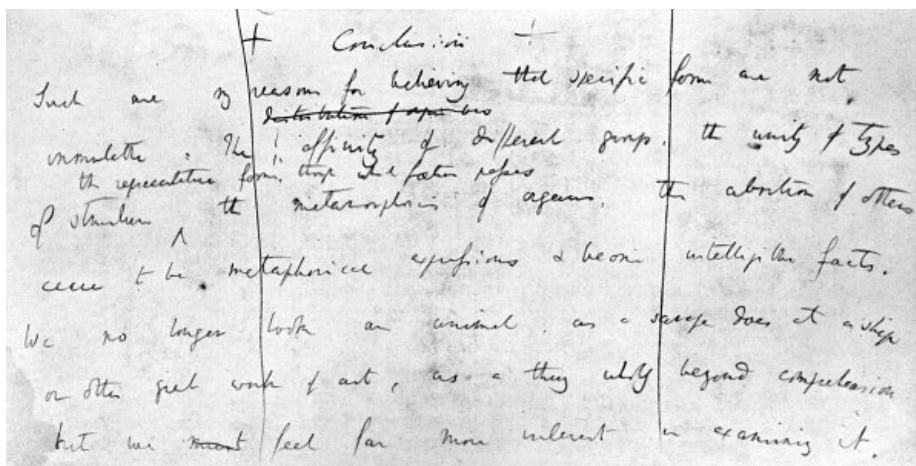 + Conclusion +
Such are my reasons for believing that specific forms are not
distribution of
immutable. The affinity of different groups, the unity of types
the representative forms, through which foetus passes
of structure the metamorphosis of organs, the abortion of others
cease to be metaphorical expressions & become intelligible facts.
We no longer look an animal as a savage does at a ship
or other great work of art, as a thing wholly beyond comprehension
but we feel far more interest in examining it.